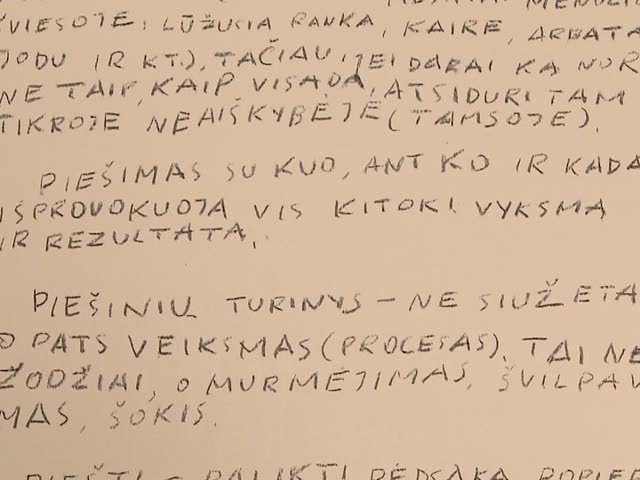 ŠVIESOJE: LŪŽUSIA RANKA, KAIRE, ARBATA
JODU IR KT.), TAČIAU, JEI DARAI KĄ NOR
NE TAIP, KAIP VISADA, ATSIDURI TAM
TIKROJE NEAIŠKYBĖJE (TAMSOJE).
PIEŠIMAS SU KUO, ANT KO IR KADA
IŠPROVOKUOJA VIS KITOKĮ VYKSMĄ
IR REZULTATĄ.
PIEŠINIŲ TURINYS – NE SIUŽETA
O PATS VEIKSMAS (PROCESAS). TAI NE
ŽODŽIAI, O MURMĖJIMAS, ŠVILPAV
MAS, ŠOKIS.
PIEŠTI – PALIKTI PĖDSAKĄ POPIE